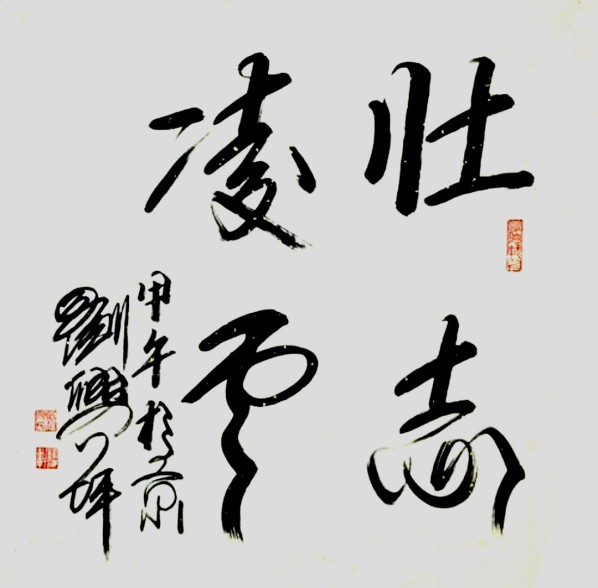 壮志
凌云
甲午於京
劉興